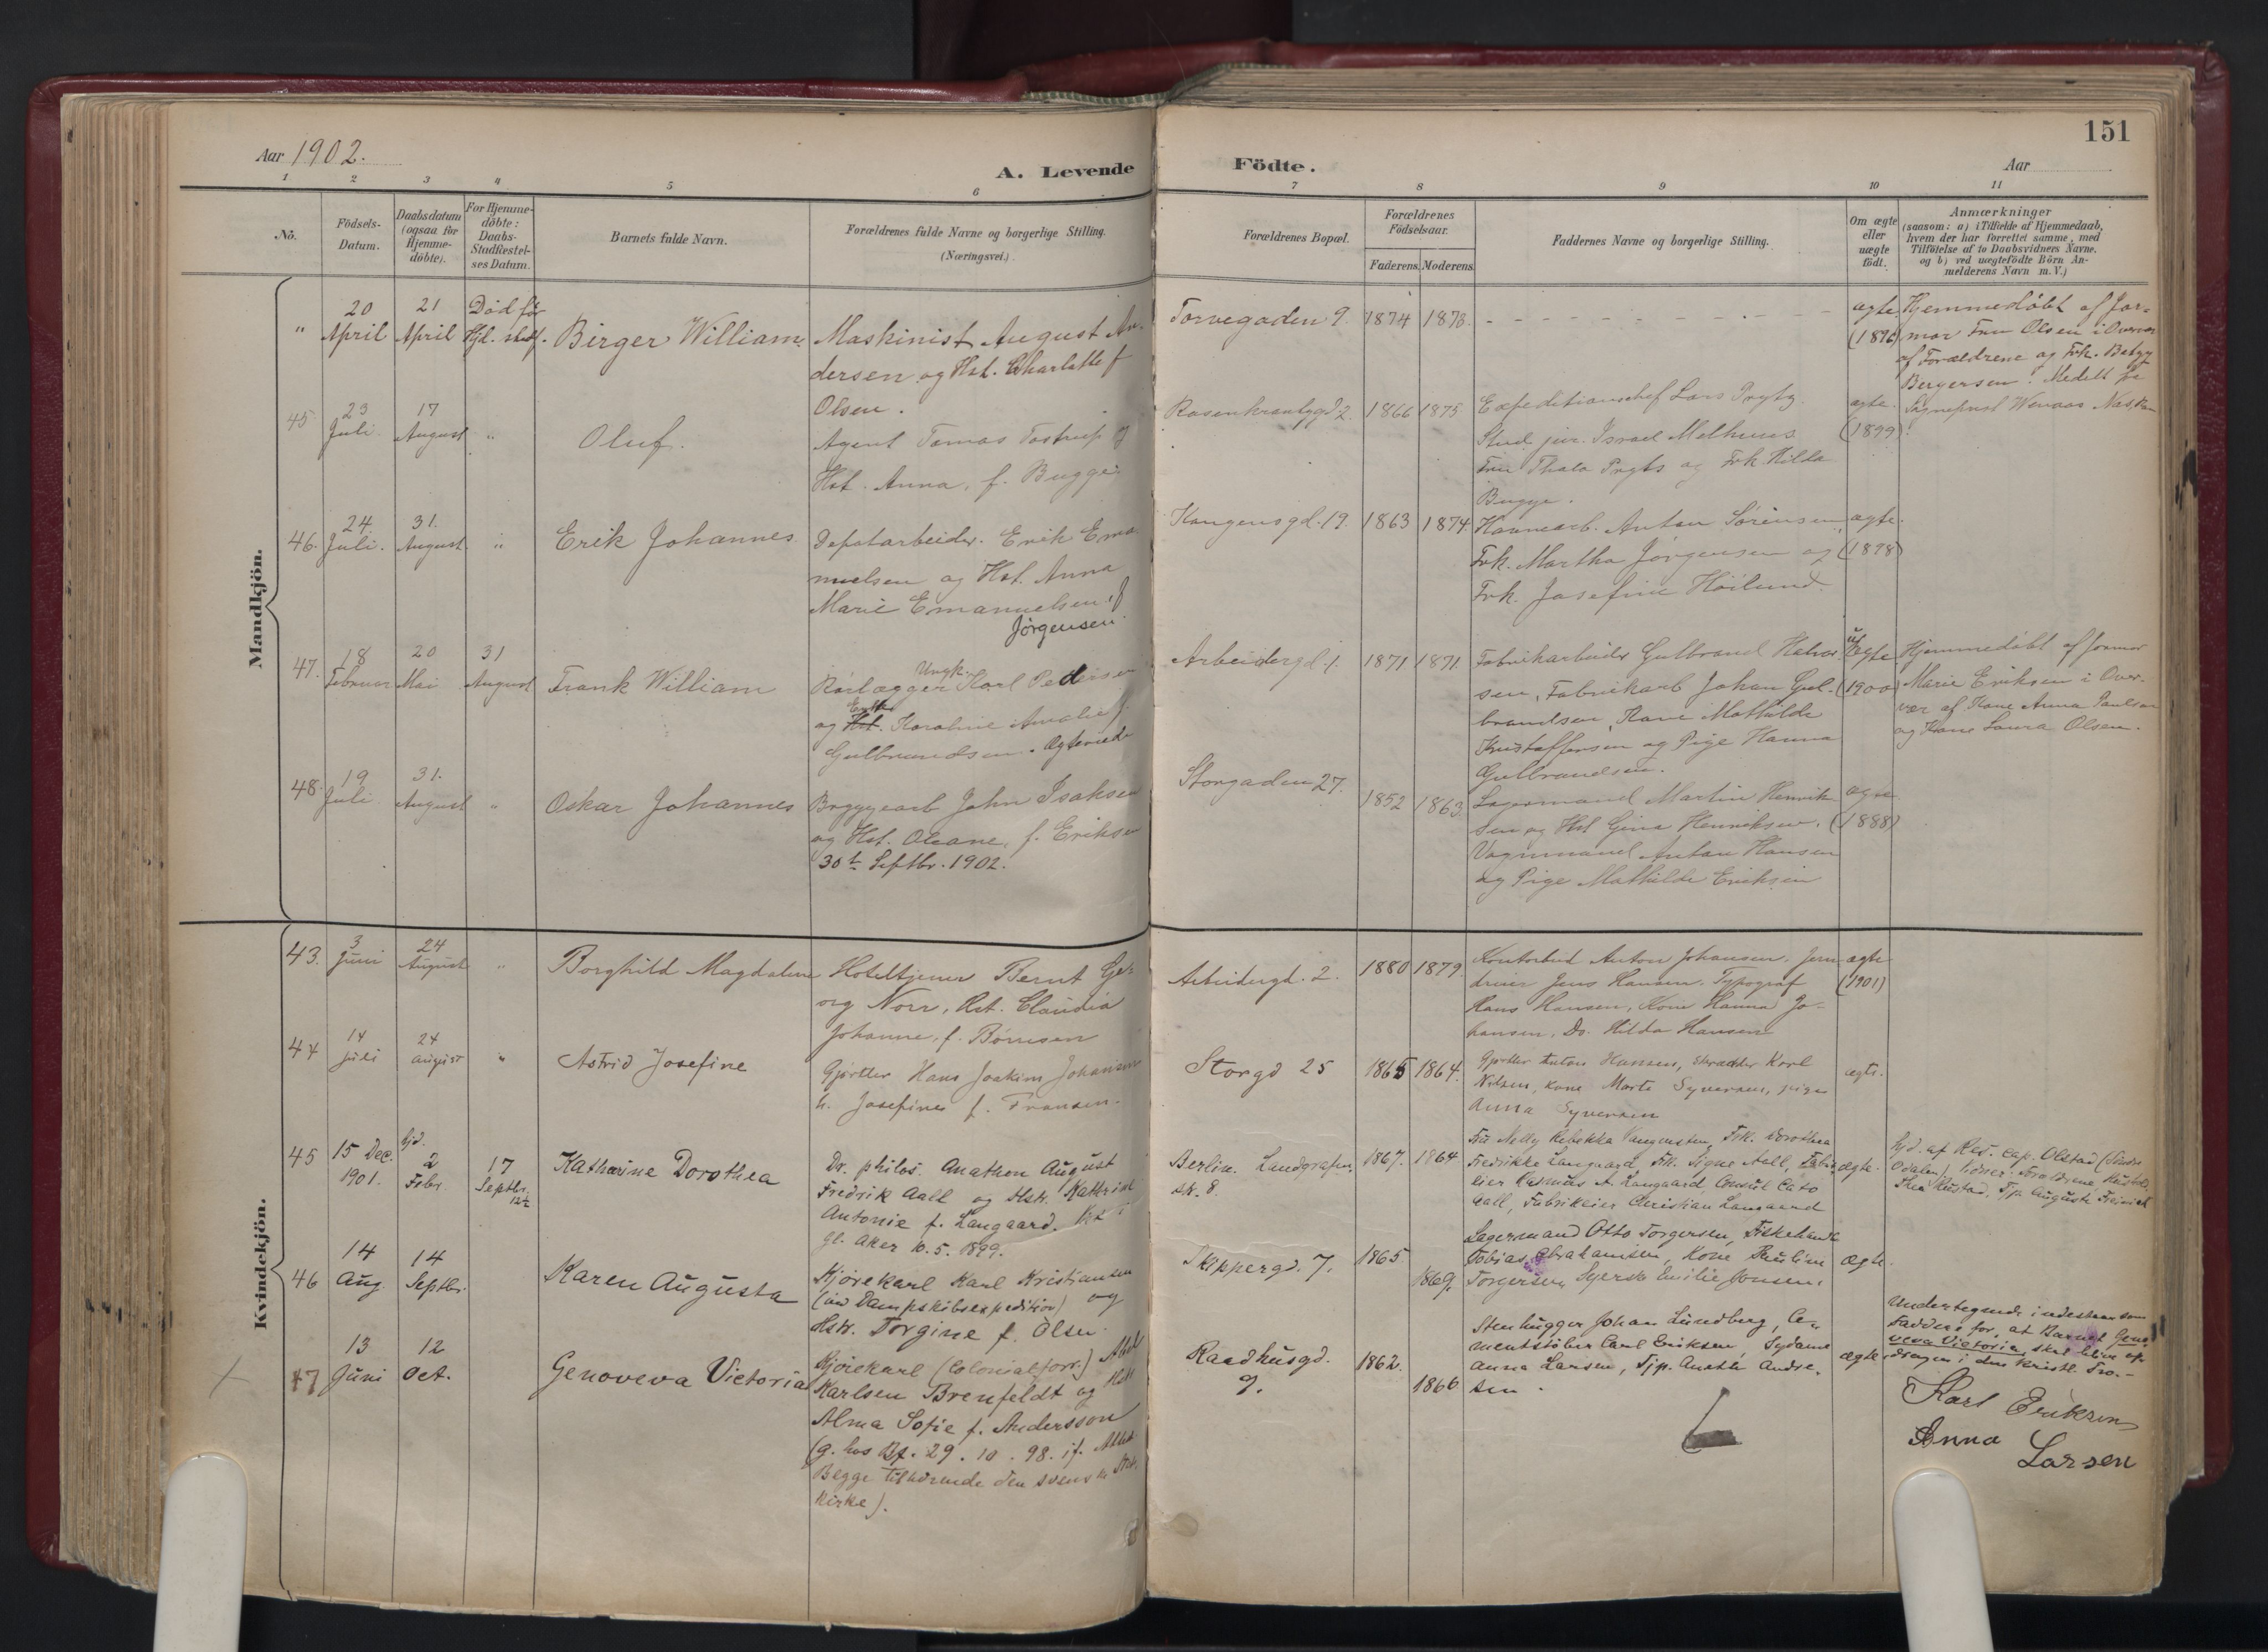 151
Aar 1902.
A. Levende
Födte.
Aar
1 2 3 4 5 6 7 8 9 10 11
Nö.
Födsels-
Datum.
Daabsdatum
(ogsaa for
Hjemme-
döbte).
For Hjemme-
döbte:
Daabs-
Stadfæstel-
ses Datum.
Barnets fulde Navn.
Forældrenes fulde Navne og borgerlige Stilling.
(Næringsvei.)
Forældrenes Bopæl.
Forældrenes
Födselsaar.
Faderens. Moderens.
Faddernes Navne og borgerlige Stilling.
Om ægte
eller
uægte
födt.
Anmærkninger
(saasom: a) i Tilfælde af Hjemmedaab,
hvem der har forrettet samme, med
Tilföielse af to Daabsvidners Navne,
og b) ved uægtefödte Börn An-
melderens Navn m. V.)
Mandkjön.
"
20
April
21
April
Död för
Hjd. stadf.
Birger William
Maskinist August An-
dersen og Hst. Charlotte f
Olsen.
Torvegaden 9.
1874 1873.
ægte
(1896)
Hjemmedöbt af Jor-
mor Fru Olsen i Overvær
af Forældrene og Frk. Betzy
Bergersen. Medelt fra
Sognepræst Wenaas Næs,
45
23
Juli
17
August
"
Oluf.
Agent Tomas Tostrup og
Hst. Anna, f. Bugge.
Rosenkrantzgd 2.
1866 1875
Expeditionschef Lars Prytz
Stud jur. Israel Melhuus
Fru Thala Prytz og Frk Hilda
Bugge.
ægte.
(1899)
46.
24.
Juli.
31.
August
"
Erik Johannes
Depotarbeider. Erik Ema
nuelsen og Hst. Anna
Marie Emanuelsen, f
Jørgensen.
Kongensgd. 19.
1863 1874.
Havnearb. Anton Sörensen,
Frk. Martha Jörgensen og
Frk. Josefine Höilund.
ægte.
(1898)
47.
18
Februar
20
Mai
31
August
Frank William
Ungk.
Rörlægger Karl Pedersen
Enke
og Hst. Karoline Amalie f.
Gulbrandsen. Ægteviede
Arbeidergd. 1.
1871 1871.
Fabrikarbeider Gulbrand Halvor
sen, Fabrikarb Johan Gul-
brandsen, Kone Mathilde
Kristoffersen og Pige Hanna
Gulbrandsen.
u
Ægte
(1900)
Hjemmedöbt af Jormor
Marie Eriksen i Over-
vær af Kone Anna Paulsen
og Kone Laura Olsen.
48.
19
Juli
31.
August
"
Oskar Johannes
Bryggearb John Isaksen
og Hst. Oleane, f. Eriksen
30te Septbr. 1902.
Storgaden 27.
1852 1863.
Lagermand Martin Henrik
sen og Hst Gina Henriksen.
Vognmand Anton Hansen
og Pige Mathilde Eriksen
ægte
(1888)
Kvindekjön.
43.
3
Juni
24
August
"
Borghild Magdalene
Hoteltjener Bernt Ge-
org Norr, Hst. Claudia
Johanne, f. Börresen
Arbeidergd. 2.
1880 1879.
Kontorbud Anton Johansen. Jern
dreier Jens Hansen. Typograf
Hans Hansen, Kone Hanna Jo-
hansen, Do. Hilda Hansen
ægte
(1901)
44
14
Juli
24
August
"
Astrid Josefine
Gjörtler Hans Joakim Johansen
h. Josefine f. Fransen.
Storgd 25
1865 1864.
Gjörtler Anton Hansen, skrædder Karl
Nilsen, kone Marte Syversen, pige
Anna Syversen
ægte.
45
15 Dec.
1901.
hjd.
2
Febr.
17
Septbr.
12½
Katharine Dorothea
Dr. philos. Anathon August
Fredrik Aall og Hstr. Kathrine
Antonie f. Langaard.
gl. Aker 10. 5. 1899.
Berlin. Landgrafen
str. 8.
1867. 1864
Fru Nelly Rebekka Vangensten, Frk. Dorothea
Fredrikke Langaard, Frk. Signe Aall, Fabrik
eier Rasmus A. Langaard, Consul Cato
Aall, Fabrikeier Christian Langaard
ægte.
hjd. af Res. cap. Olstad (Söndre
Odalen). Vidner: Forældrene,
46
14
Aug.
14
Septbr.
Karen Augusta
Kjörekarl Karl Kristiansen
(ved Dampskibsexpedition) og
Hstr. Torgine f. Olsen.
Skippergd. 7.
1865
1869.
Lagermand Otto Torgersen, Fiskehandl.
Tobias Abrahamsen, Kone Pauline
Torgersen, Syerske Emilie Jonsen.
ægte.
47
13
Juni
12
Oct.
Genoveva Victoria
Kjörekarl (Colonialforr.) Axel
Karlsen Brenfeldt og Hstr.
Alma Sofie f. Andersson
(g. hos Bf. 29. 10. 98. if. Attest.
Begge tilhörende den svenske Stats
kirke).
Raadhusgd.
9.
1862.
1866
Stenhugger Johan Lundberg, Ce-
mentstöber Carl Eriksen, Sydame
Anna Larsen, Tjp. Anette Andre-
sen.
ægte
Undertegnede indestaar som
Faddere for, at Barnet Geno
veva Victoria skal blive op-
dragen i den kristl. Tro.-
Karl Eriksen
Anna
Larsen